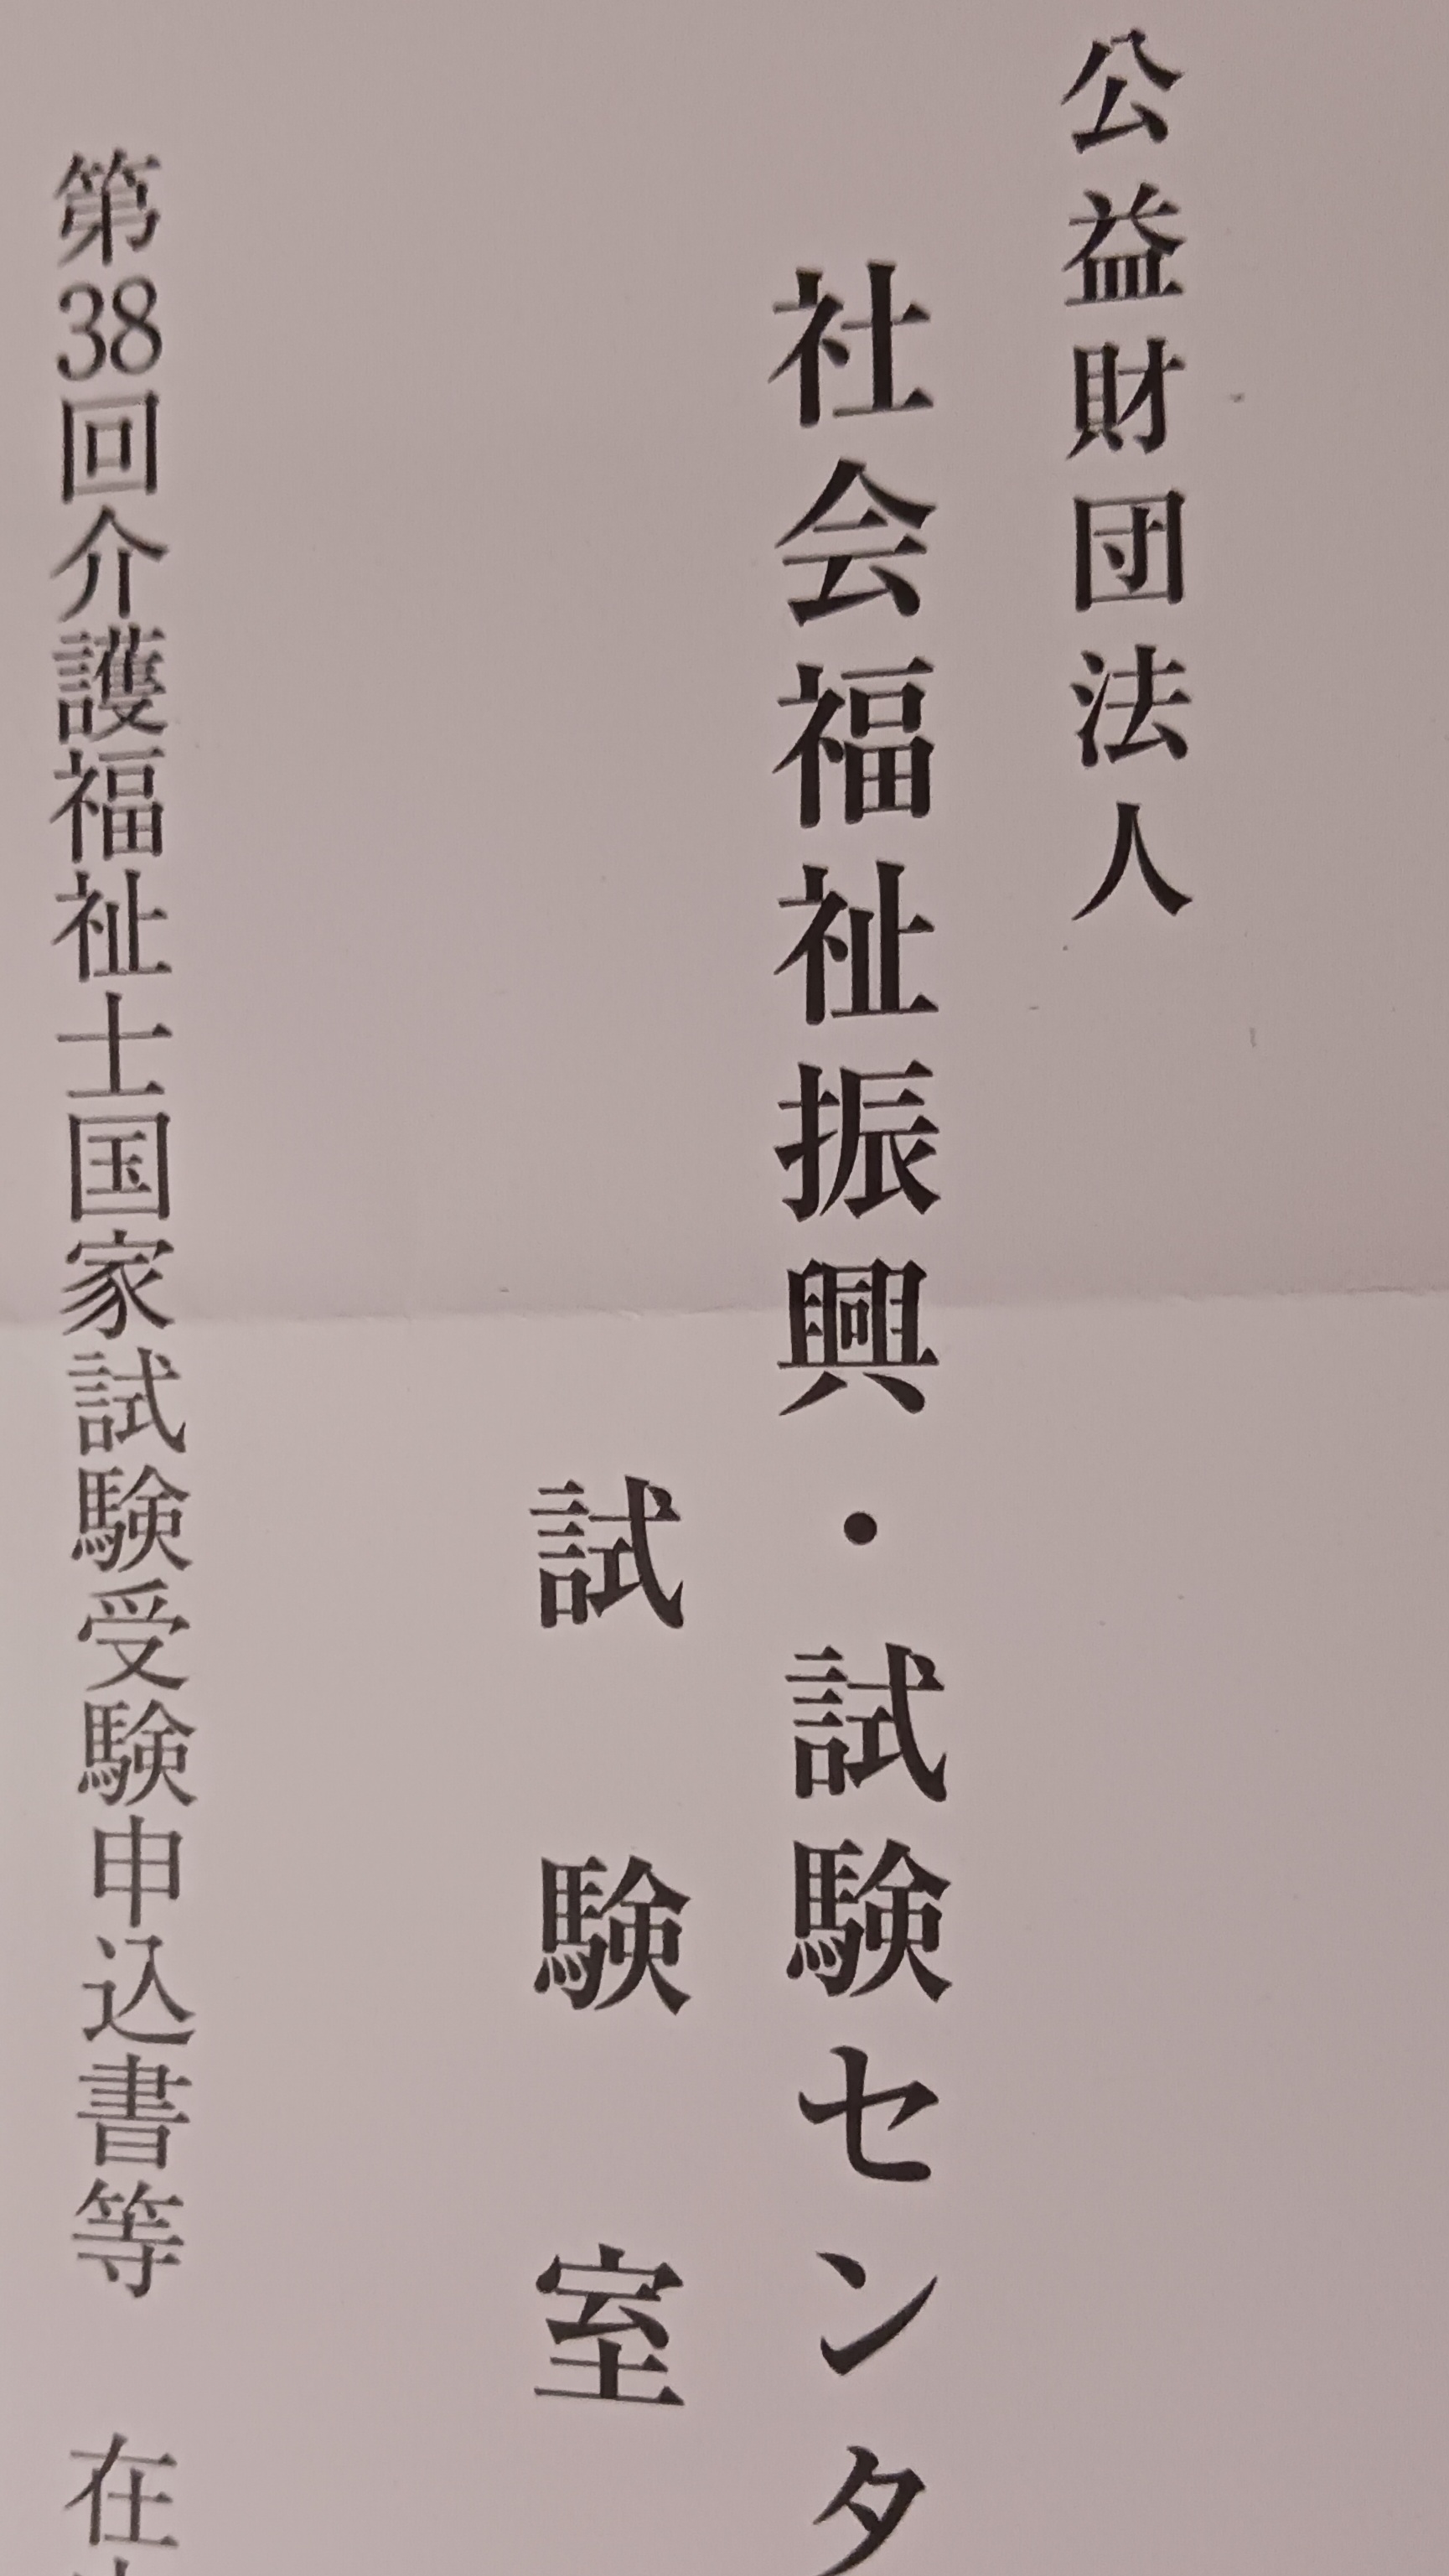 公益財団法人
社会福祉振興・試験センタ
試験室
第38回介護福祉士国家試験受験申込書等 在